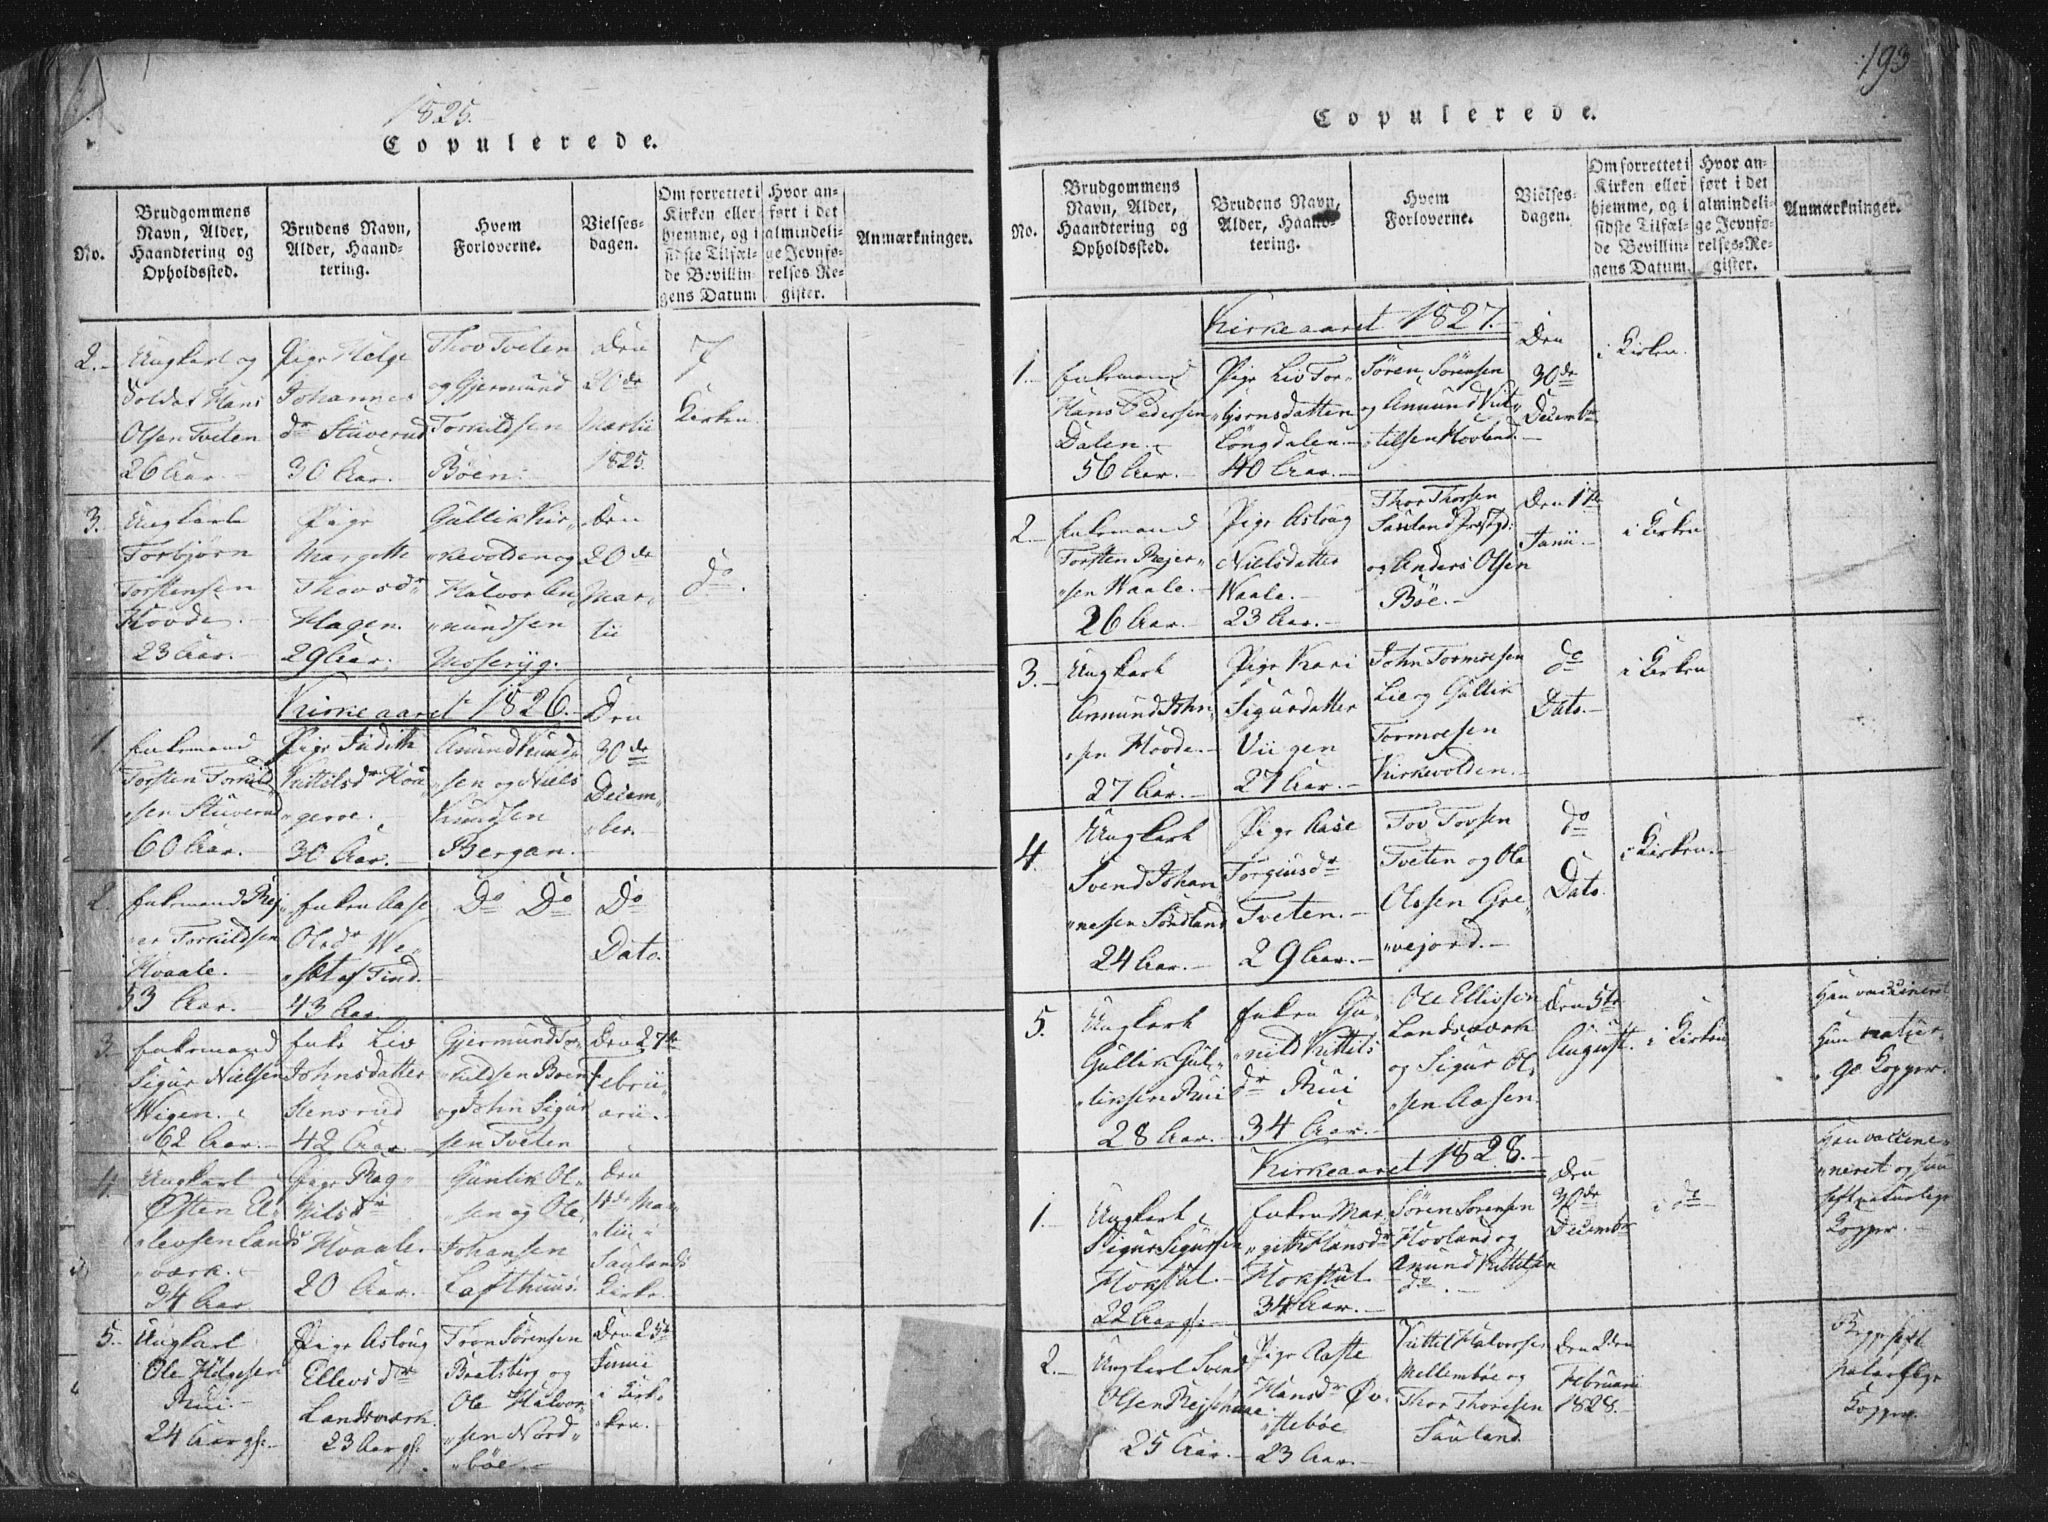 1825.
Copulerede.
No.
Brudgommens
Navn, Alder,
Haandtering og
Opholdssted.
Brudens Navn,
Alder, Haand-
tering.
Hvem
Forloverne.
Vielses-
dagen.
Om forrettet i
Kirken eller
hjemme, og i
sidste Tilfæl-
de Bevillin-
gens Datum
Hvor an-
ført i det
almindeli-
ge Jevnfø-
relses-Re-
gister.
Anmærkninger.
2.-
Ungkarl og
Soldat Hans
Olsen Tveten
26 Aar.-
Pige Helge
Johannes
dr Stuverud
30 Aar.
Thov Tveten
og Gjermund
Torkildsen
Bøen.
Den
20de
Martii
1825.
I
Kirken.
3.
Ungkarl
Torbjørn
Torstensen
Hovde.-
23 Aar.-
Pige
Margette
Thovsdr
Hagen.
29 Aar.
Gullik Kir-
"kevolden og
Halvor An-
"nundsen
Moseryg.
Den
20de
Mar-
tii
do.
Kirkeaaret 1826.-
1.
Enkemand
Torsten Torkild
"sen Stuverud
60 Aar.
Pige Judith
Kittilsdr Hou
"gerve.
30 Aar.
Amund Knud-
"sen og Niels
Knudsen
Bergan.-
Den
30de
Decem-
"ber.-
2.
Enkemand Rej
"er Torkildsen
Hvaale.-
53 Aar.-
Enken Aase
Olsdr We-
"set af Tind.
43 Aar.
Do Do
Do
Dato.
3.
Enkemand
Sigur Nielsen
Wigen.
62 Aar.-
Enke Liv
Johnsdatter
Stensrud
42 Aar.-
Gjermund Tor-
"kildsen Boen
og John Sigur
sen Tveten
Den 27de
Febru-
arii.-
4.
Ungkarl
Østen El-
"levsen Lands
"værk.-
34 Aar
Pige Rag-
Nilsdr
Hvaale.
20 Aar.-
Gunlik Ol-
"sen og Ole
Johansen
Lofthuus.
Den
4de Mar-
"tii i
Saulands
Kirke.
5.
Ungkarl
Ole Helgesen
Rui.-
24 Aar gl:
Pige Asloug
Ellevsdr
Landsværk.
23 Aar gl:
Tron Sørensen
Bratsberg og
Ole Halvor-
"sen Nord-
"bøe.-
Den 25de
Junii
i Kirk-
"ken.
193
Copulerede.
No.
Brudgommens
Navn, Alder,
Haandtering og
Opholdssted.
Brudens Navn,
Alder, Haand-
tering.
Hvem
Forloverne.
Vielses-
dagen.
Om forrettet i
Kirken eller
hjemme, og i
sidste Tilfæl-
de Bevillin-
gens Datum.
Hvor an-
ført i det
almindeli-
ge Jevnfø-
relses-Re-
gister.
Anmærkninger.
Kirkeaaret 1827.-
1.-
Enkemand
Hans Pedersen
Dalen.-
56 Aar.-
Pige Liv Tor-
"bjørnsdatter
Løngdalen.-
40 Aar.-
Søren Sørensen
og Amund Kit-
"tilsen Hovland.-
Den
30de
Decembr
i Kirken.
2.-
Enkemand
Torsten Rejer-
"sen Waale.-
26 Aar.-
Pige Aslaug
Nielsdatter
Waale.-
23 Aar.-
Thor Thorsen
Sauland
og Anders Olsen
Bøe.-
Den 17de
Junii.-
i Kirken
3.-
Ungkarl
Amund John-
"sen Hovde.-
27 Aar.-
Pige Kari
Sigursdatter
Viigen
27 Aar.-
John Tormoesen
Lien og Gullik
Tormoesen
Kirkevolden.-
do
Dato.-
i Kirken
4.
Ungkarl
Svend Johan-
"nesen Søndland
24 Aar.-
Pige Aase
Torgiusdr
Tveten.-
29 Aar.-
Tov Tovsen
Tveten og Ole
Olssen Gre-
"vejord.-
do
Dato.
i Kirken.-
5.
Ungkarl
Gullik Gul-
"liksen Rui
28 Aar.-
Enken Gu-
"nild Kittils
dr Rui
34 Aar.-
Ole Ellevsen
Landsværk
og Sigur Ol-
"sen Aasen.
Den 5te
August.
i Kirken
Han vaccineret
Hun natur-
"ge Kopper.
Kirkeaaret 1828.-
1.-
Ungkarl
Sigur Sigursen
Hokstul.-
22 Aar gl:
Enken Mar-
"githe Hansdr
Hokstul.-
34 Aar.-
Søren Sørensen
Hovland og
Amund Kittelsen
do.-
Den
30de
Decembr
i do
Han vaccine-
"neret og hun
haft naturlige
Kopper.-
2.-
Ungkarl Svend
Olsen Rejshuse
25 Aar.-
Pige Aaste
Hansdr Øv-
"stebøe
23 Aar.-
Kittel Halvorsen
Mellembøe og
Thor Thorsen
Sauland
Den 2den
Februarii
1828.-
naturlige
Kopper.